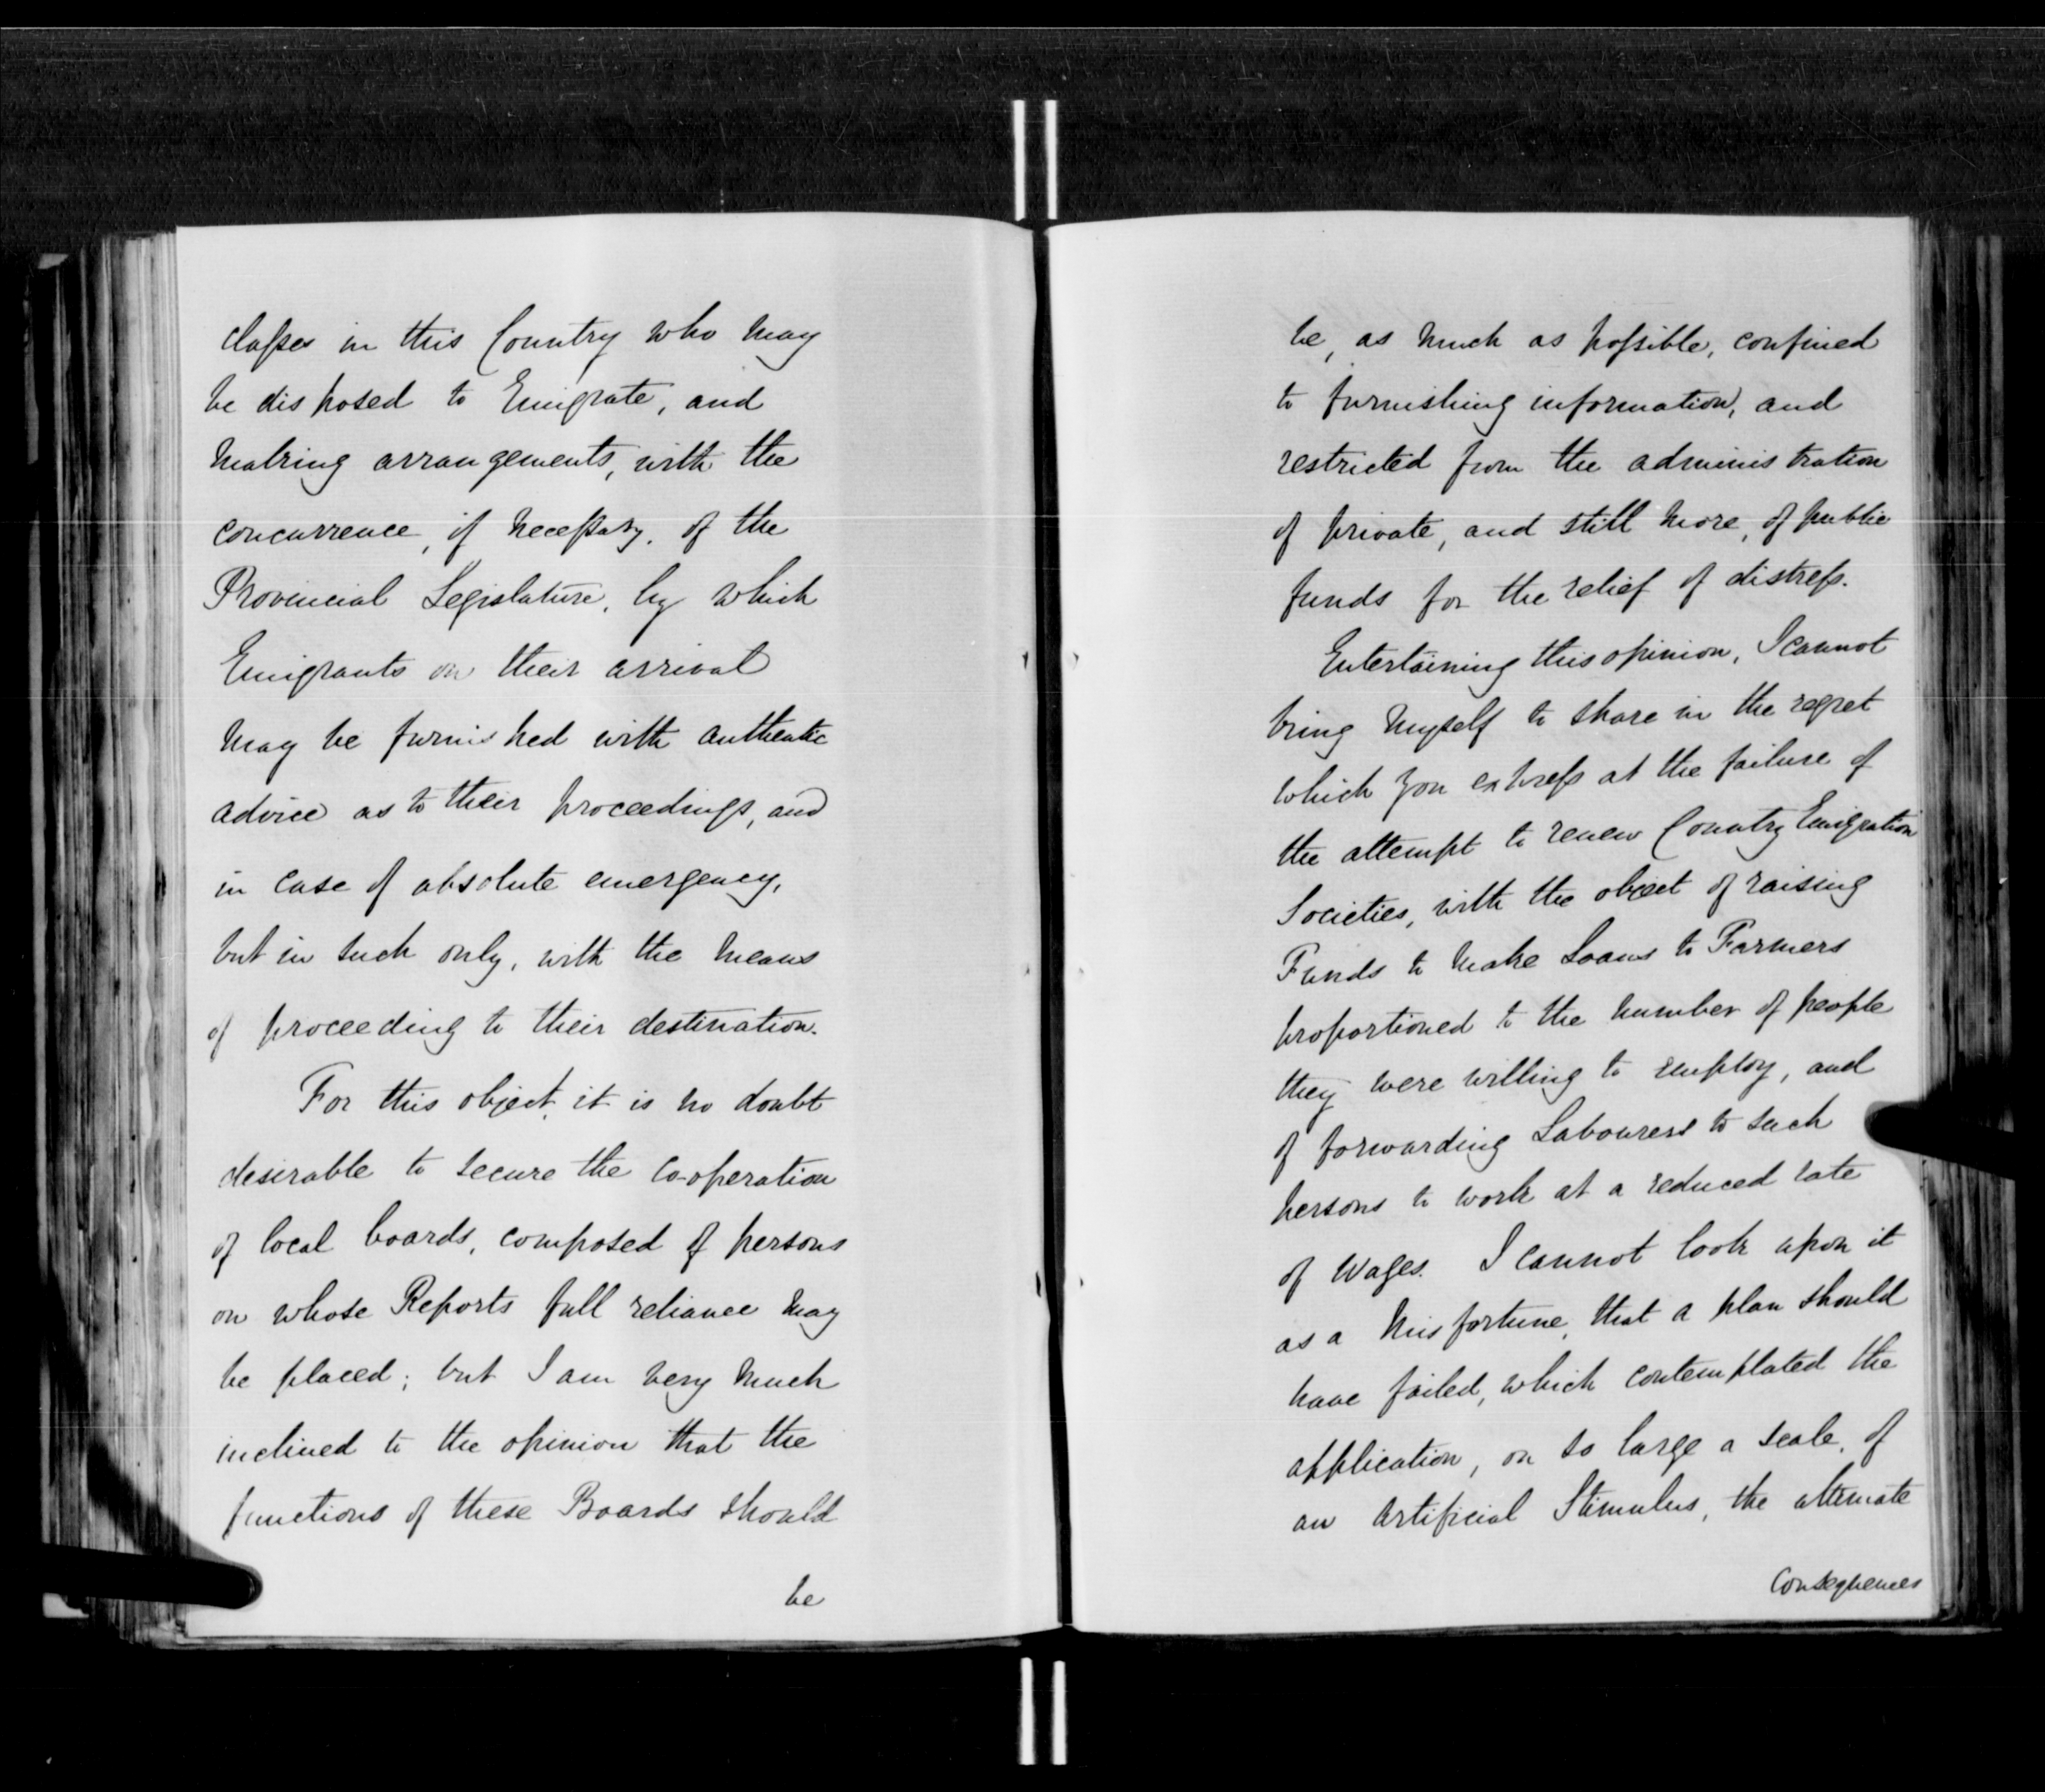 classes in this Country who may
be disposed to Emigrate, and
making arrangements, with the
concurrence, if necessary, of the
Provincial Legislature, by which
Emigrants on their arrival
may be furnished with authentic
advice as to their proceedings, and
in case of absolute emergency,
but in such only, with the means
of proceeding to their destination.
For this object, it is no doubt
desirable to secure the co-operation
of local boards, composed of persons
on whose Reports full reliance may
be placed; but I am very much
inclined to the opinion that the
functions of these Boards should
be
be, as much as possible, confined
to furnishing information, and
restricted from the administration
of private, and still more, of public
funds for the relief of distress.
Entertaining this opinion, I cannot
bring myself to share in the regret
which you express at the failure of
the attempt to renew Country Emigration
Societies, with the object of raising
Funds to make Loans to Farmers
proportioned to the number of people
they were willing to employ, and
of forwarding Labourers to such
persons to work at a reduced rate
of Wages. I cannot look upon it
as a misfortune, that a plan should
have failed, which contemplated the
application, on so large a scale, of
an artificial Stimulus, the ultimate
Consequences